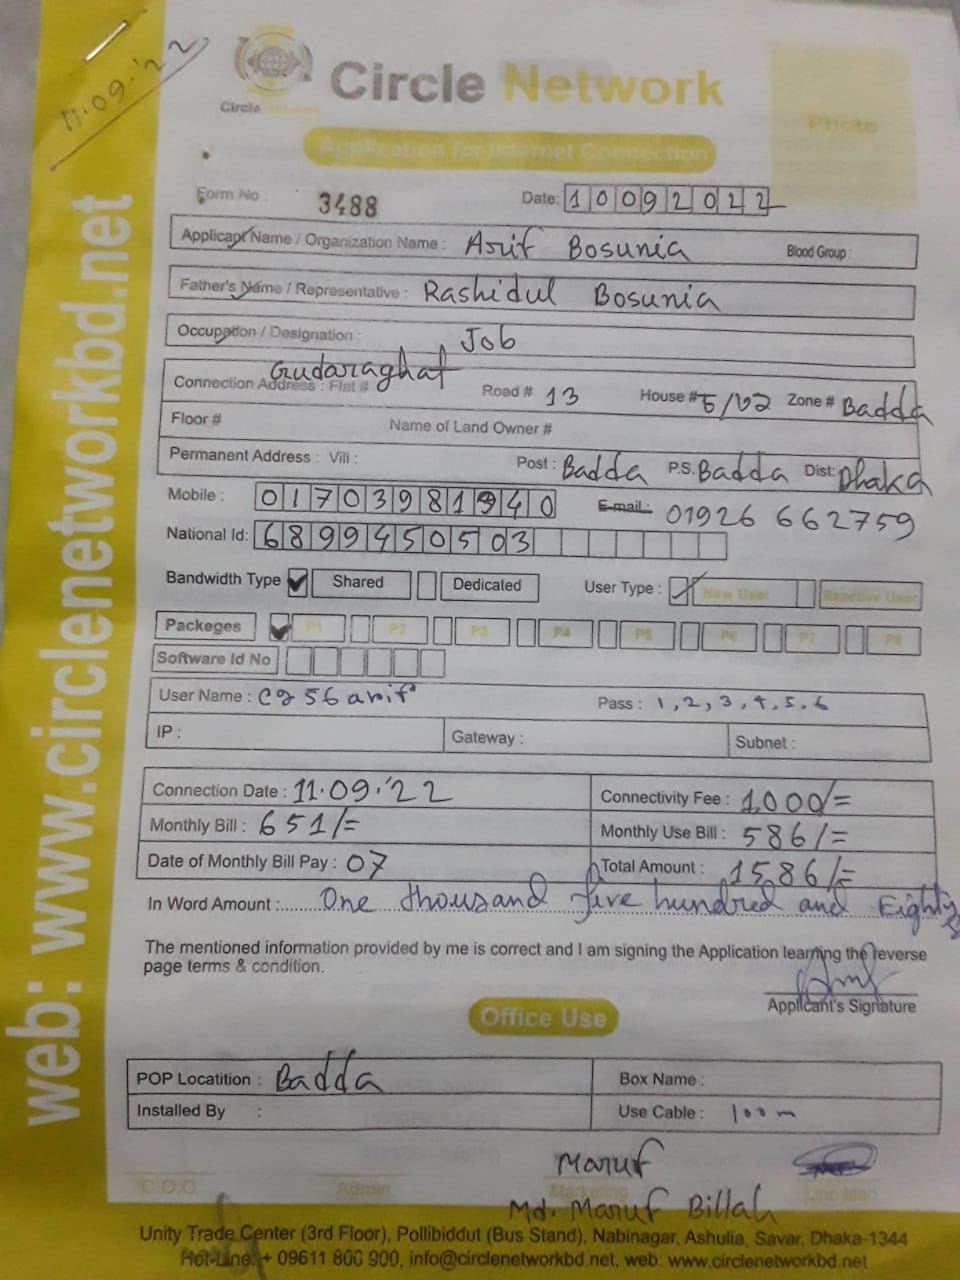 11.09.'22
Circle Network
Circle
Photo
Application for Internet Connection
Form No : 3488 Date: 10092022
Applicant Name / Organization Name : Arif Bosunia Blood Group :
Father's Name / Representative : Rashidul Bosunia
Occupation / Designation : Job
Gudaraghat
Connection Address : Flat # Road # 13 House # Zone # Badda
Floor # Name of Land Owner #
Permanent Address : Vill : Post : Badda P.S. Badda Dist: Dhaka
Mobile : 01703981940 E-mail: 01926 662759
National Id: 6899450503
Bandwidth Type Shared Dedicated User Type : New User Reactive User
Packeges P1 P2 P3 P4 P5 P6 P7 P8
Software Id No
User Name : c256arif Pass : 1,2,3,4,5,6
IP : Gateway : Subnet :
Connection Date : 11.09.'22 Connectivity Fee : 1000/=
Monthly Bill : 651/= Monthly Use Bill : 586/=
Date of Monthly Bill Pay : 07 Total Amount : 1586/=
In Word Amount :...... One thousand five hundred and Eighty
The mentioned information provided by me is correct and I am signing the Application learning the reverse
page terms & condition.
Applicant's Signature
Office Use
POP Locatition : Badda Box Name :
Installed By : Use Cable : 100m
Maruf
C.O.O Admin Marketing Line Man
Md. Maruf Billah
Unity Trade Center (3rd Floor), Pollibiddut (Bus Stand), Nabinagar, Ashulia, Savar, Dhaka-1344
Hot-Line: + 09611 800 900, info@circlenetworkbd.net, web: www.circlenetworkbd.net
web: www.circlenetworkbd.net